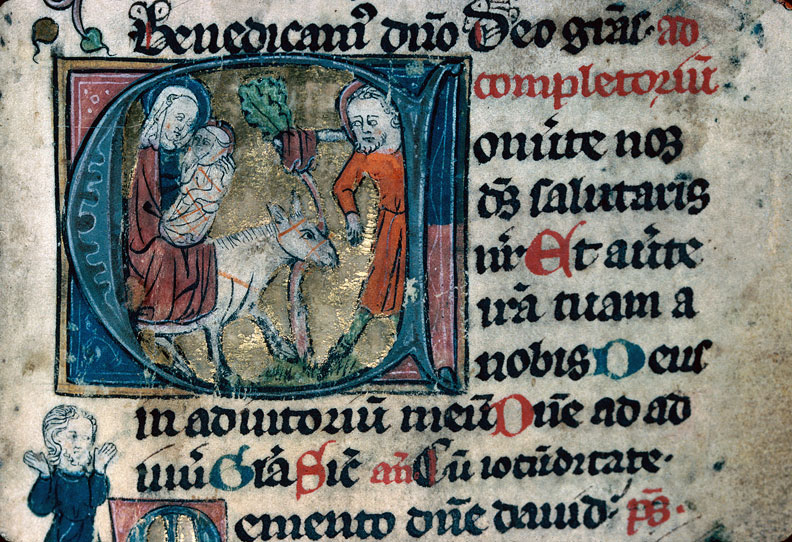 Benedicamꝰ dn̄o Deo gr̄as· ad
completoriū
Conu̾te nos
d̄s salutaris
nr̄ Et au̾te
irā tuam a
nobis Deus
in adiutoriū meū Dn̄e ad ad
iuuū Gr̄a Sic̄ an̄ Cū iocūditate·
Memento dn̄e dauid· p̄s·